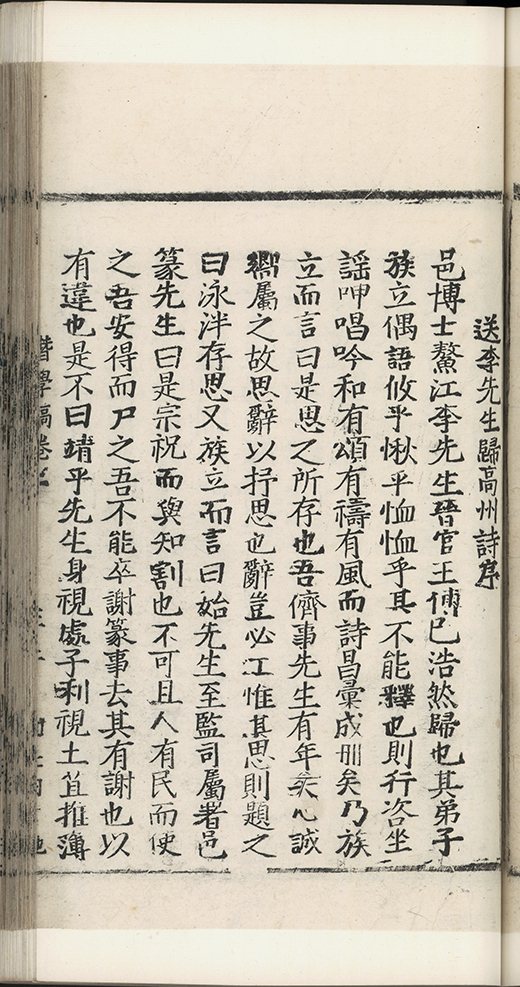 送李先生歸高州詩序
邑博士鰲江李先生晉官王傅已浩然歸也其弟子
族立偶語攸乎愀乎恤恤乎其不能釋也則行咨坐
謠呻唱吟和有頌有禱有風而詩昌彙成冊矣乃族
立而言曰是思之所存也吾儕事先生有年矣心誠
嚮屬之故思辭以抒思也辭豈必工惟其思則題之
曰泳泮存思又族立而言曰始先生至監司屬署邑
篆先生曰是宗祝而與知割也不可且人有民而使
之吾安得而尸之吾不能卒謝篆事去其有謝也以
有違也是不曰靖乎先生身視處子利視土苴推簿
學稿卷之